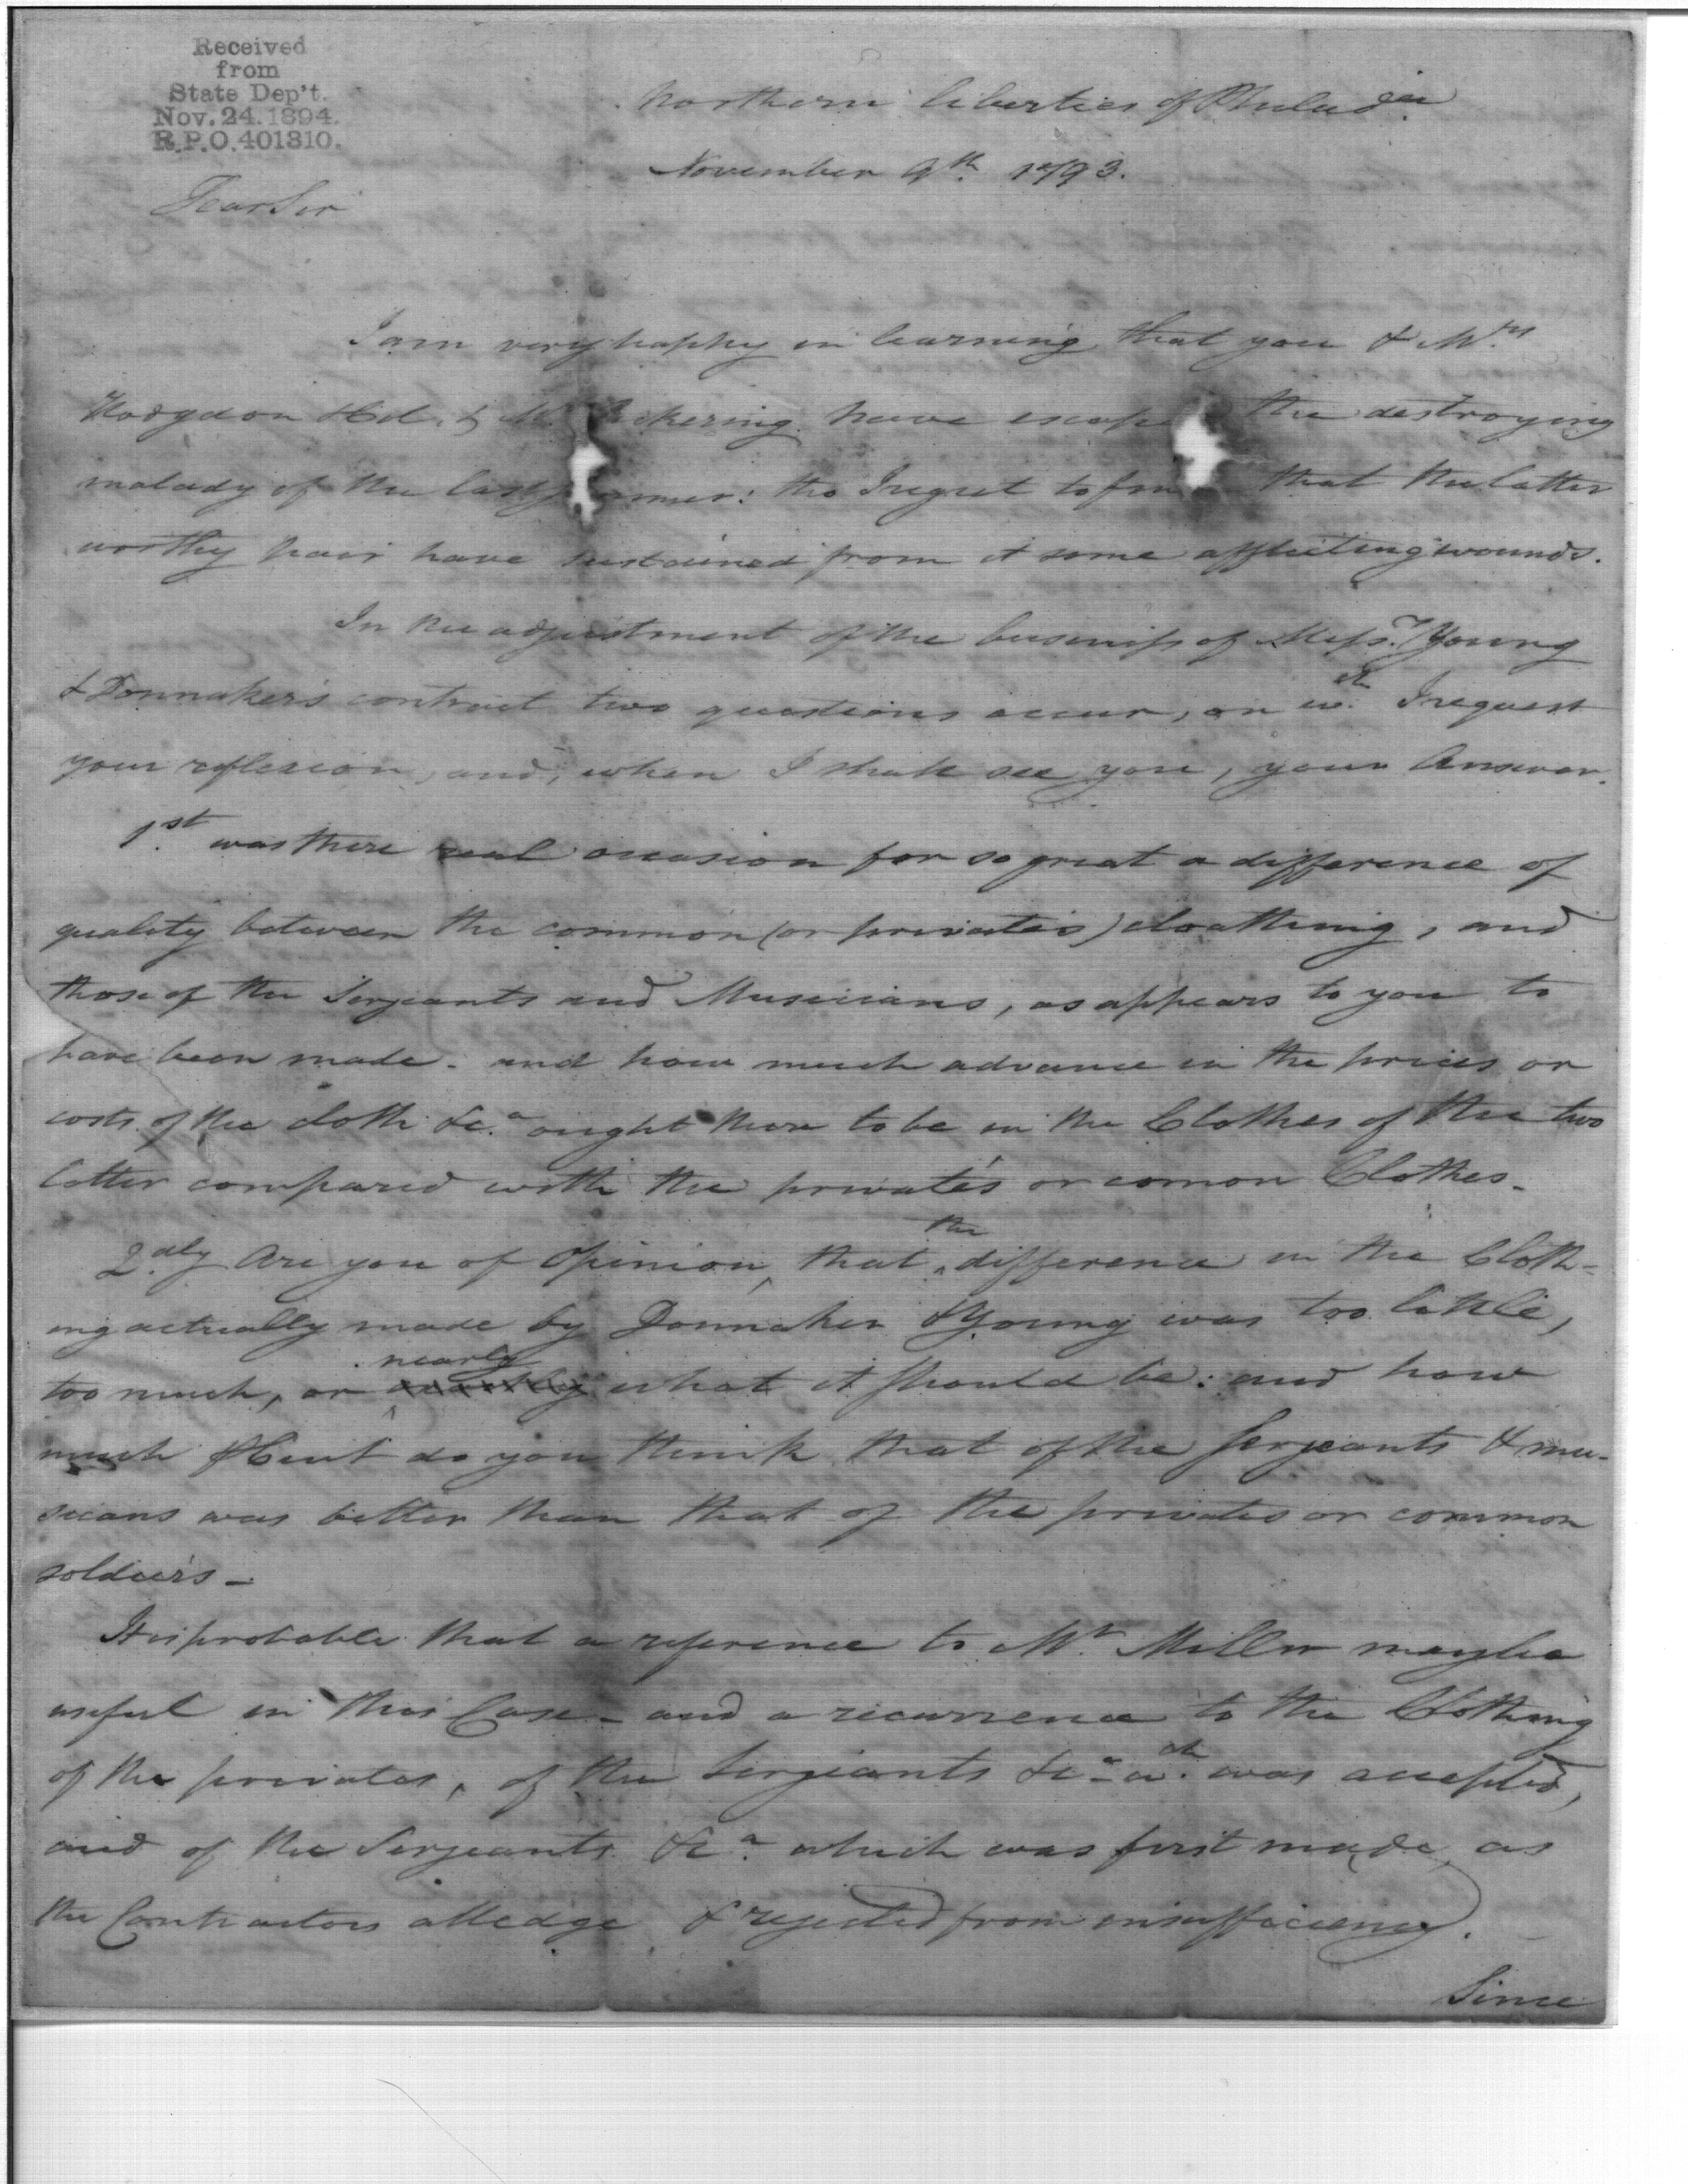 Received
from
State Dep't.
Nov. 24. 1894.
R.P.O. 401310.
Northern liberties of Philad.ia
November 9th. 1793.
Dear Sir
I am very happy in learning that you & Mrs.
Hodgdon & Col. & M. ckering have escap the destroying
malady of the last mmer: tho I regret to fin that the latter
worthy pair have sustained from it some afflicting wounds.
In the adjustment of the business of Messrs. Young
& Donnaker's contract two questions occur, on wch. I request
your reflexion, and, when I shall see you, your Answer.
1st. was there real occasion for so great a difference of
quality between the common (or privates) cloathing, and
those of the Serjeants and Musicians, as appears to you to
have been made. and how much advance in the prices or
costs of the cloth &c.a ought there to be in the Clothes of the two
latter compared with the private's or comon Clothes.
2dly Are you of Opinion, that the difference in the Cloth-
ing actually made by Donnaker & Young was too little,
too much, or nearly what it should be: and how
much Cent do you think that of the Serjeants & mu-
sicians was better than that of the privates or common
soldiers -
It is probable that a reference to Mr. Miller may be
useful in this Case - and a recurrence to the Clothing
of the privates, of the Serjeants &c.a wch. was accepted,
and of the Serjeants &c.a which was first made, as
the Contractors alledge & rejected from insufficiency.
Since